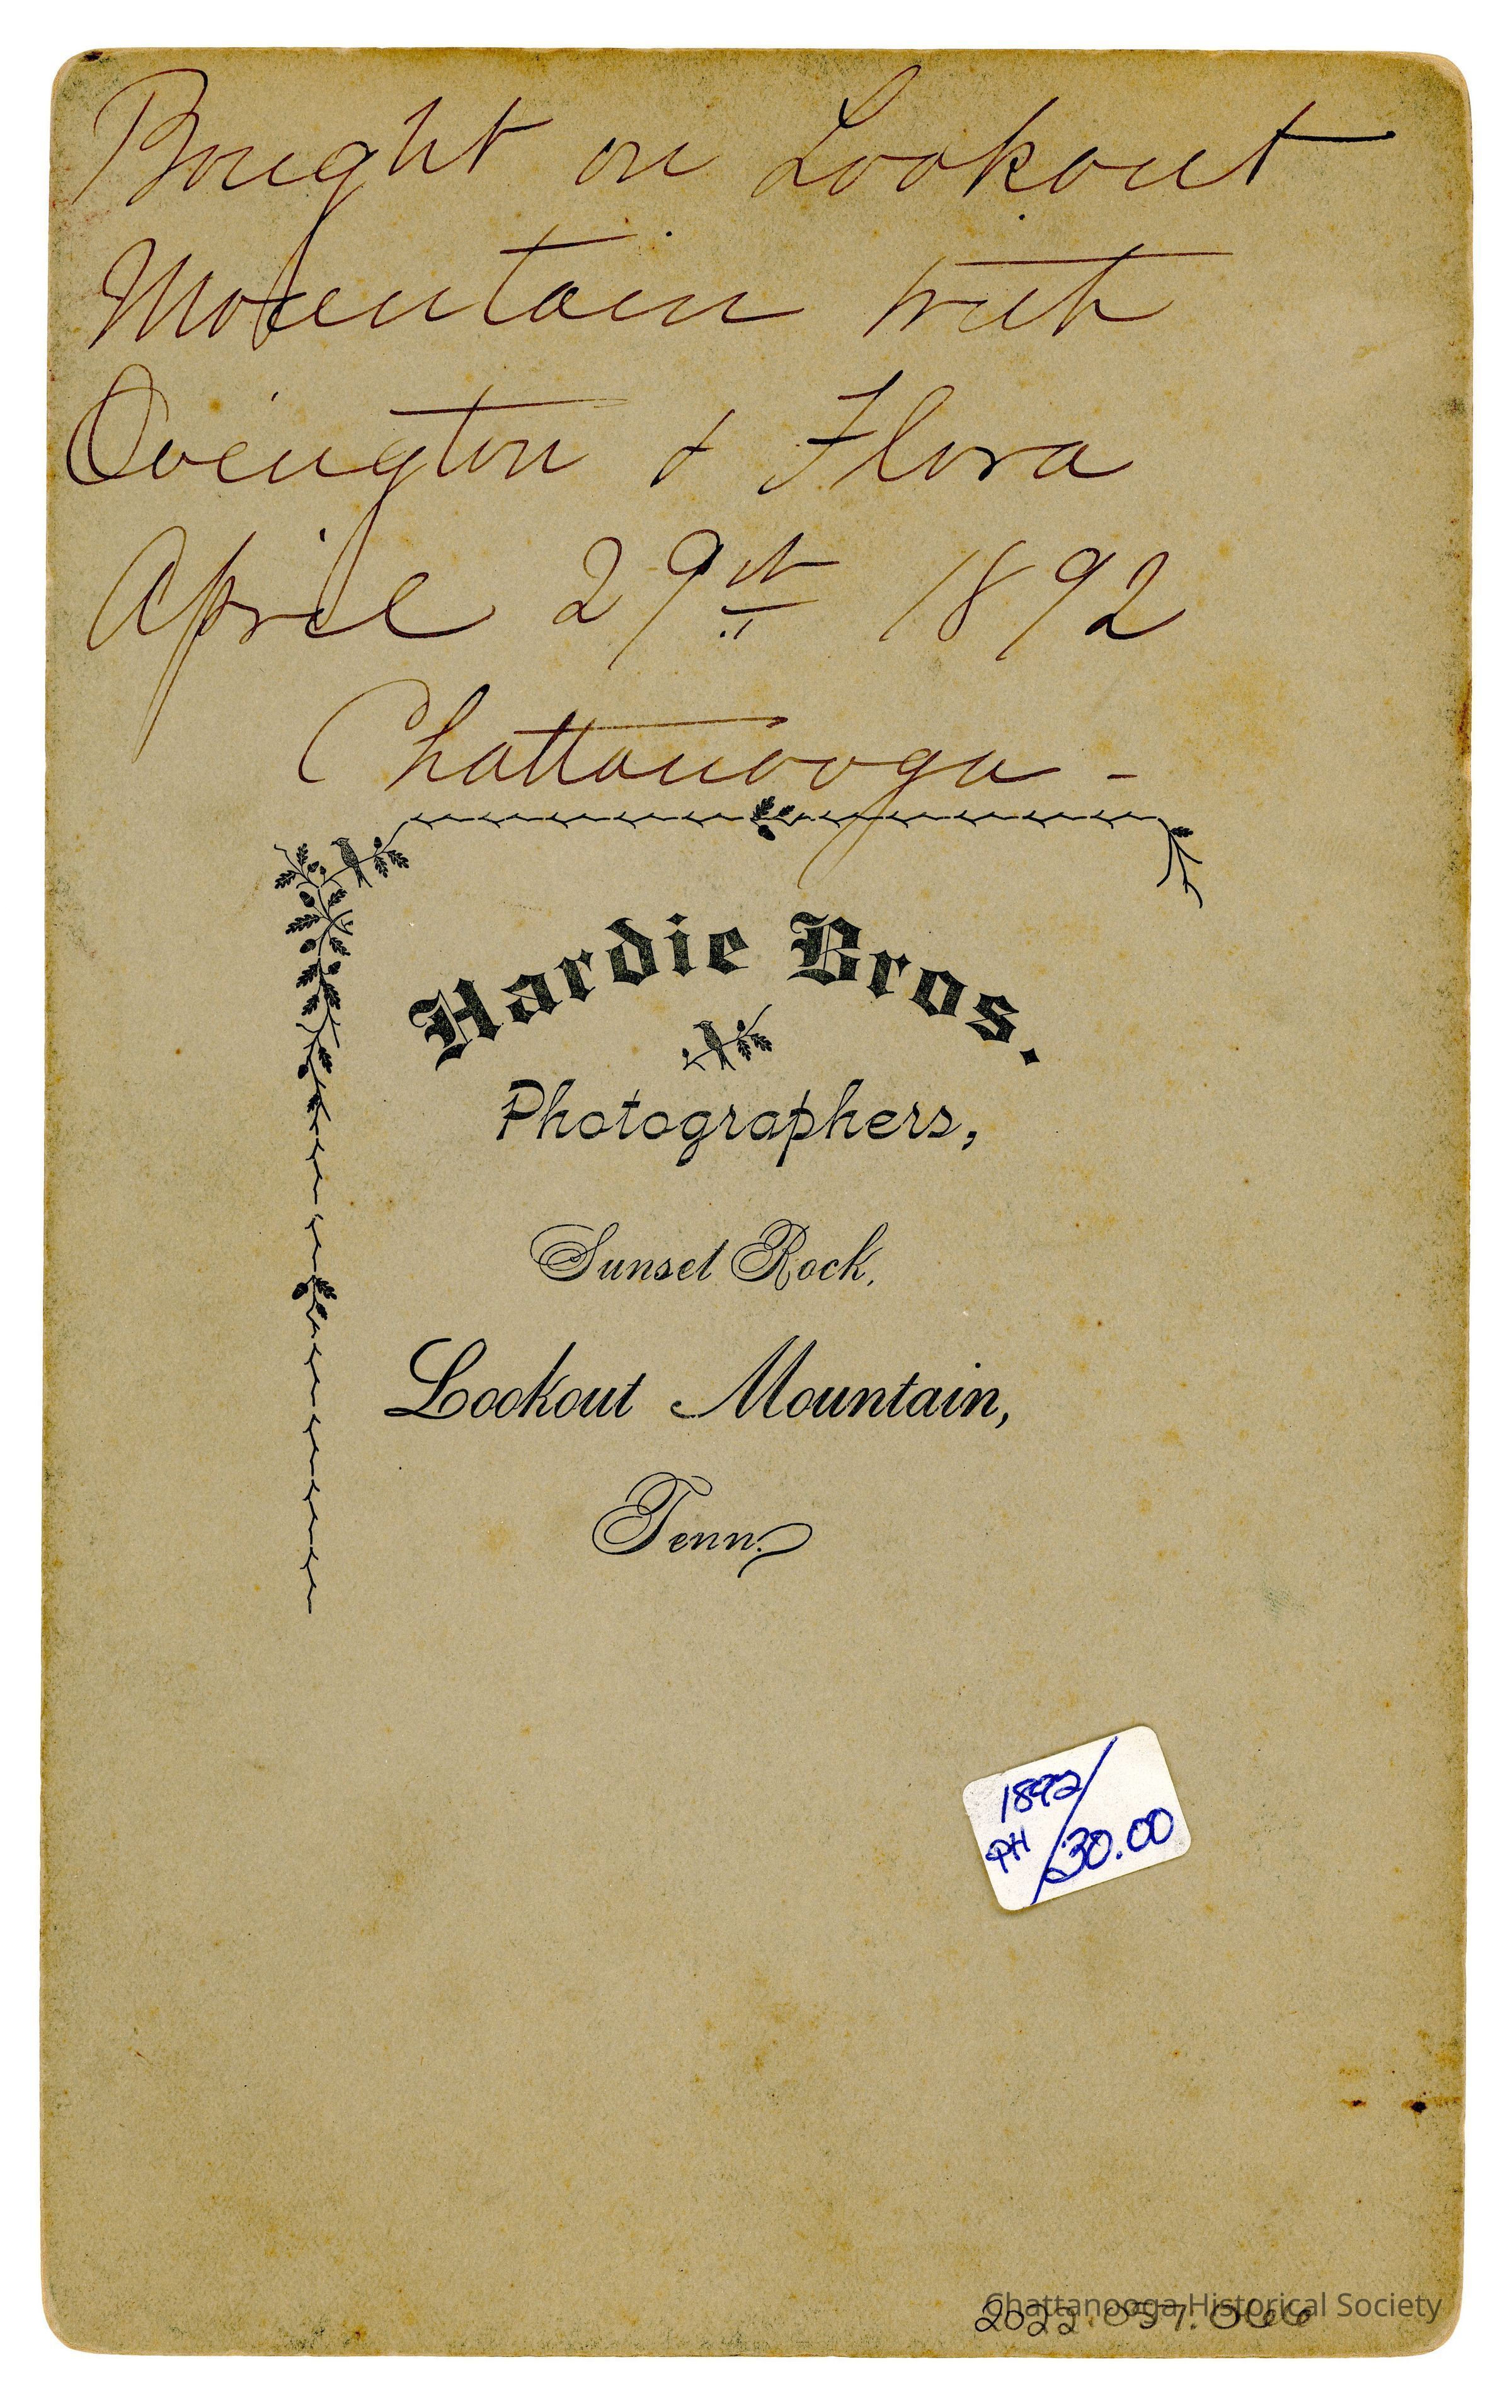 Bought on Lookout
Mountain with
Ovington & Flora
April 29th 1892
Chattanooga -
Hardie Bros.
Photographers,
Sunset Rock,
Lookout Mountain,
Tenn.
1892/
PH /30.00
Chattanooga Historical Society
2022.057.066